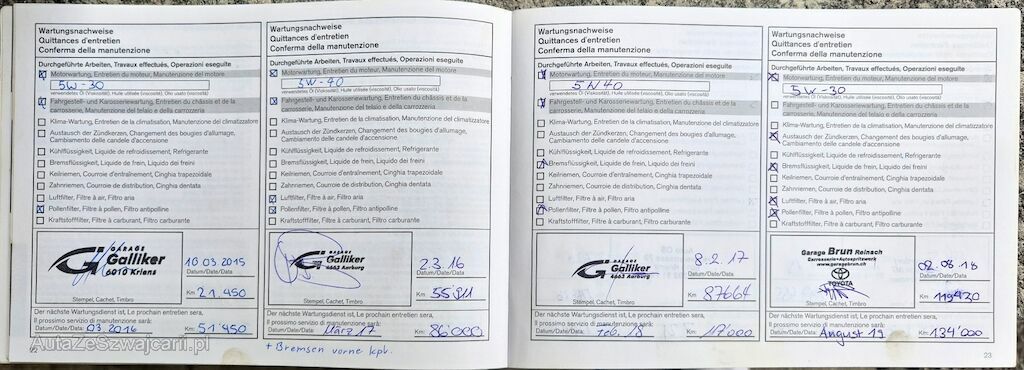 Wartungsnachweise
Quittances d'entretien
Conferma della manutenzione
Durchgeführte Arbeiten, Travaux effectués, Operazioni eseguite
Motorwartung, Entretien du moteur, Manutenzione del motore
5W-30
verwendetes Öl (Viskosität), Huile utilisée (viscosité), Olio usato (viscosità)
Fahrgestell- und Karosseriewartung, Entretien du châssis et de la
carrosserie, Manutenzione del telaio e della carrozzeria
Klima-Wartung, Entretien de la climatisation, Manutenzione del climatizzatore
Austausch der Zündkerzen, Changement des bougies d'allumage,
Cambiamento delle candele d'accensione
Kühlflüssigkeit, Liquide de refroidissement, Refrigerante
Bremsflüssigkeit, Liquide de frein, Liquido dei freini
Keilriemen, Courroie d'entraînement, Cinghia trapezoidale
Zahnriemen, Courroie de distribution, Cinghia dentata
Luftfilter, Filtre à air, Filtro aria
Pollenfilter, Filtre à pollen, Filtro antipolline
Kraftstofffilter, Filtre à carburant, Filtro carburante
GARAGE
Galliker
6010 Kriens
10 03 2015
Datum/Date/Data
Km: 21.450
Stempel, Cachet, Timbro
Der nächste Wartungsdienst ist, Le prochain entretien sera,
Il prossimo servizio di manutenzione sarà:
Datum/Date/Data: 03 2016 Km: 51'450
Wartungsnachweise
Quittances d'entretien
Conferma della manutenzione
Durchgeführte Arbeiten, Travaux effectués, Operazioni eseguite
Motorwartung, Entretien du moteur, Manutenzione del motore
5W-40
verwendetes Öl (Viskosität), Huile utilisée (viscosité), Olio usato (viscosità)
Fahrgestell- und Karosseriewartung, Entretien du châssis et de la
carrosserie, Manutenzione del telaio e della carrozzeria
Klima-Wartung, Entretien de la climatisation, Manutenzione del climatizzatore
Austausch der Zündkerzen, Changement des bougies d'allumage,
Cambiamento delle candele d'accensione
Kühlflüssigkeit, Liquide de refroidissement, Refrigerante
Bremsflüssigkeit, Liquide de frein, Liquido dei freini
Keilriemen, Courroie d'entraînement, Cinghia trapezoidale
Zahnriemen, Courroie de distribution, Cinghia dentata
Luftfilter, Filtre à air, Filtro aria
Pollenfilter, Filtre à pollen, Filtro antipolline
Kraftstofffilter, Filtre à carburant, Filtro carburante
GARAGE
Galliker
4663 Aarburg
2.3.16
Datum/Date/Data
Km:
Stempel, Cachet, Timbro
Der nächste Wartungsdienst ist, Le prochain entretien sera,
Il prossimo servizio di manutenzione sarà:
Datum/Date/Data: März 17 Km: 86'000
+ Bremsen vorne kpl.
Wartungsnachweise
Quittances d'entretien
Conferma della manutenzione
Durchgeführte Arbeiten, Travaux effectués, Operazioni eseguite
Motorwartung, Entretien du moteur, Manutenzione del motore
5W40
verwendetes Öl (Viskosität), Huile utilisée (viscosité), Olio usato (viscosità)
Fahrgestell- und Karosseriewartung, Entretien du châssis et de la
carrosserie, Manutenzione del telaio e della carrozzeria
Klima-Wartung, Entretien de la climatisation, Manutenzione del climatizzatore
Austausch der Zündkerzen, Changement des bougies d'allumage,
Cambiamento delle candele d'accensione
Kühlflüssigkeit, Liquide de refroidissement, Refrigerante
Bremsflüssigkeit, Liquide de frein, Liquido dei freini
Keilriemen, Courroie d'entraînement, Cinghia trapezoidale
Zahnriemen, Courroie de distribution, Cinghia dentata
Luftfilter, Filtre à air, Filtro aria
Pollenfilter, Filtre à pollen, Filtro antipolline
Kraftstofffilter, Filtre à carburant, Filtro carburante
GARAGE
Galliker
4663 Aarburg
8.2.17
Datum/Date/Data
Km: 87664
Stempel, Cachet, Timbro
Der nächste Wartungsdienst ist, Le prochain entretien sera,
Il prossimo servizio di manutenzione sarà:
Datum/Date/Data: Feb. 18 Km:
Wartungsnachweise
Quittances d'entretien
Conferma della manutenzione
Durchgeführte Arbeiten, Travaux effectués, Operazioni eseguite
Motorwartung, Entretien du moteur, Manutenzione del motore
5W-30
verwendetes Öl (Viskosität), Huile utilisée (viscosité), Olio usato (viscosità)
Fahrgestell- und Karosseriewartung, Entretien du châssis et de la
carrosserie, Manutenzione del telaio e della carrozzeria
Klima-Wartung, Entretien de la climatisation, Manutenzione del climatizzatore
Austausch der Zündkerzen, Changement des bougies d'allumage,
Cambiamento delle candele d'accensione
Kühlflüssigkeit, Liquide de refroidissement, Refrigerante
Bremsflüssigkeit, Liquide de frein, Liquido dei freini
Keilriemen, Courroie d'entraînement, Cinghia trapezoidale
Zahnriemen, Courroie de distribution, Cinghia dentata
Luftfilter, Filtre à air, Filtro aria
Pollenfilter, Filtre à pollen, Filtro antipolline
Kraftstofffilter, Filtre à carburant, Filtro carburante
Garage Brun Reinach
Carrosserie+Autospritzwerk
www.garagebrun.ch
TOYOTA
02.08.18
Datum/Date/Data
Km: 119420
Stempel, Cachet, Timbro
Der nächste Wartungsdienst ist, Le prochain entretien sera,
Il prossimo servizio di manutenzione sarà:
Datum/Date/Data: August 19 Km: 134'000
23
AutaZeSzwajcarii.pl